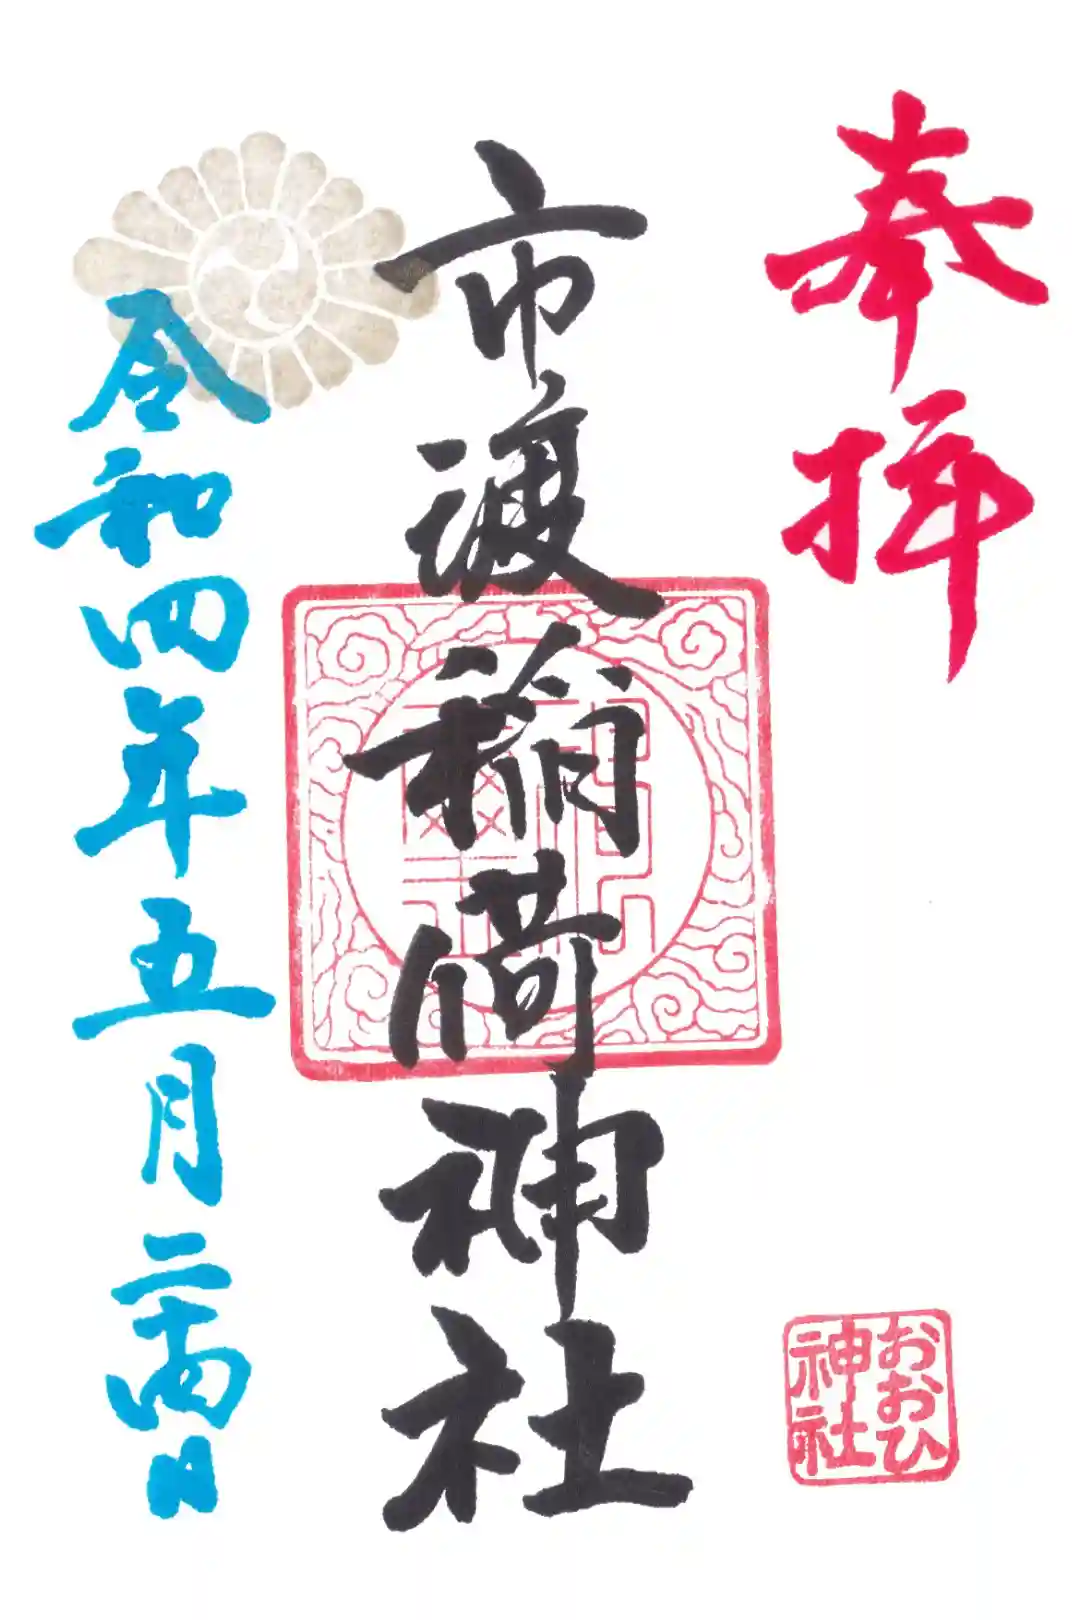 奉拝
おおひ
神社
市渡稲荷神社
令和四年五月二十四日